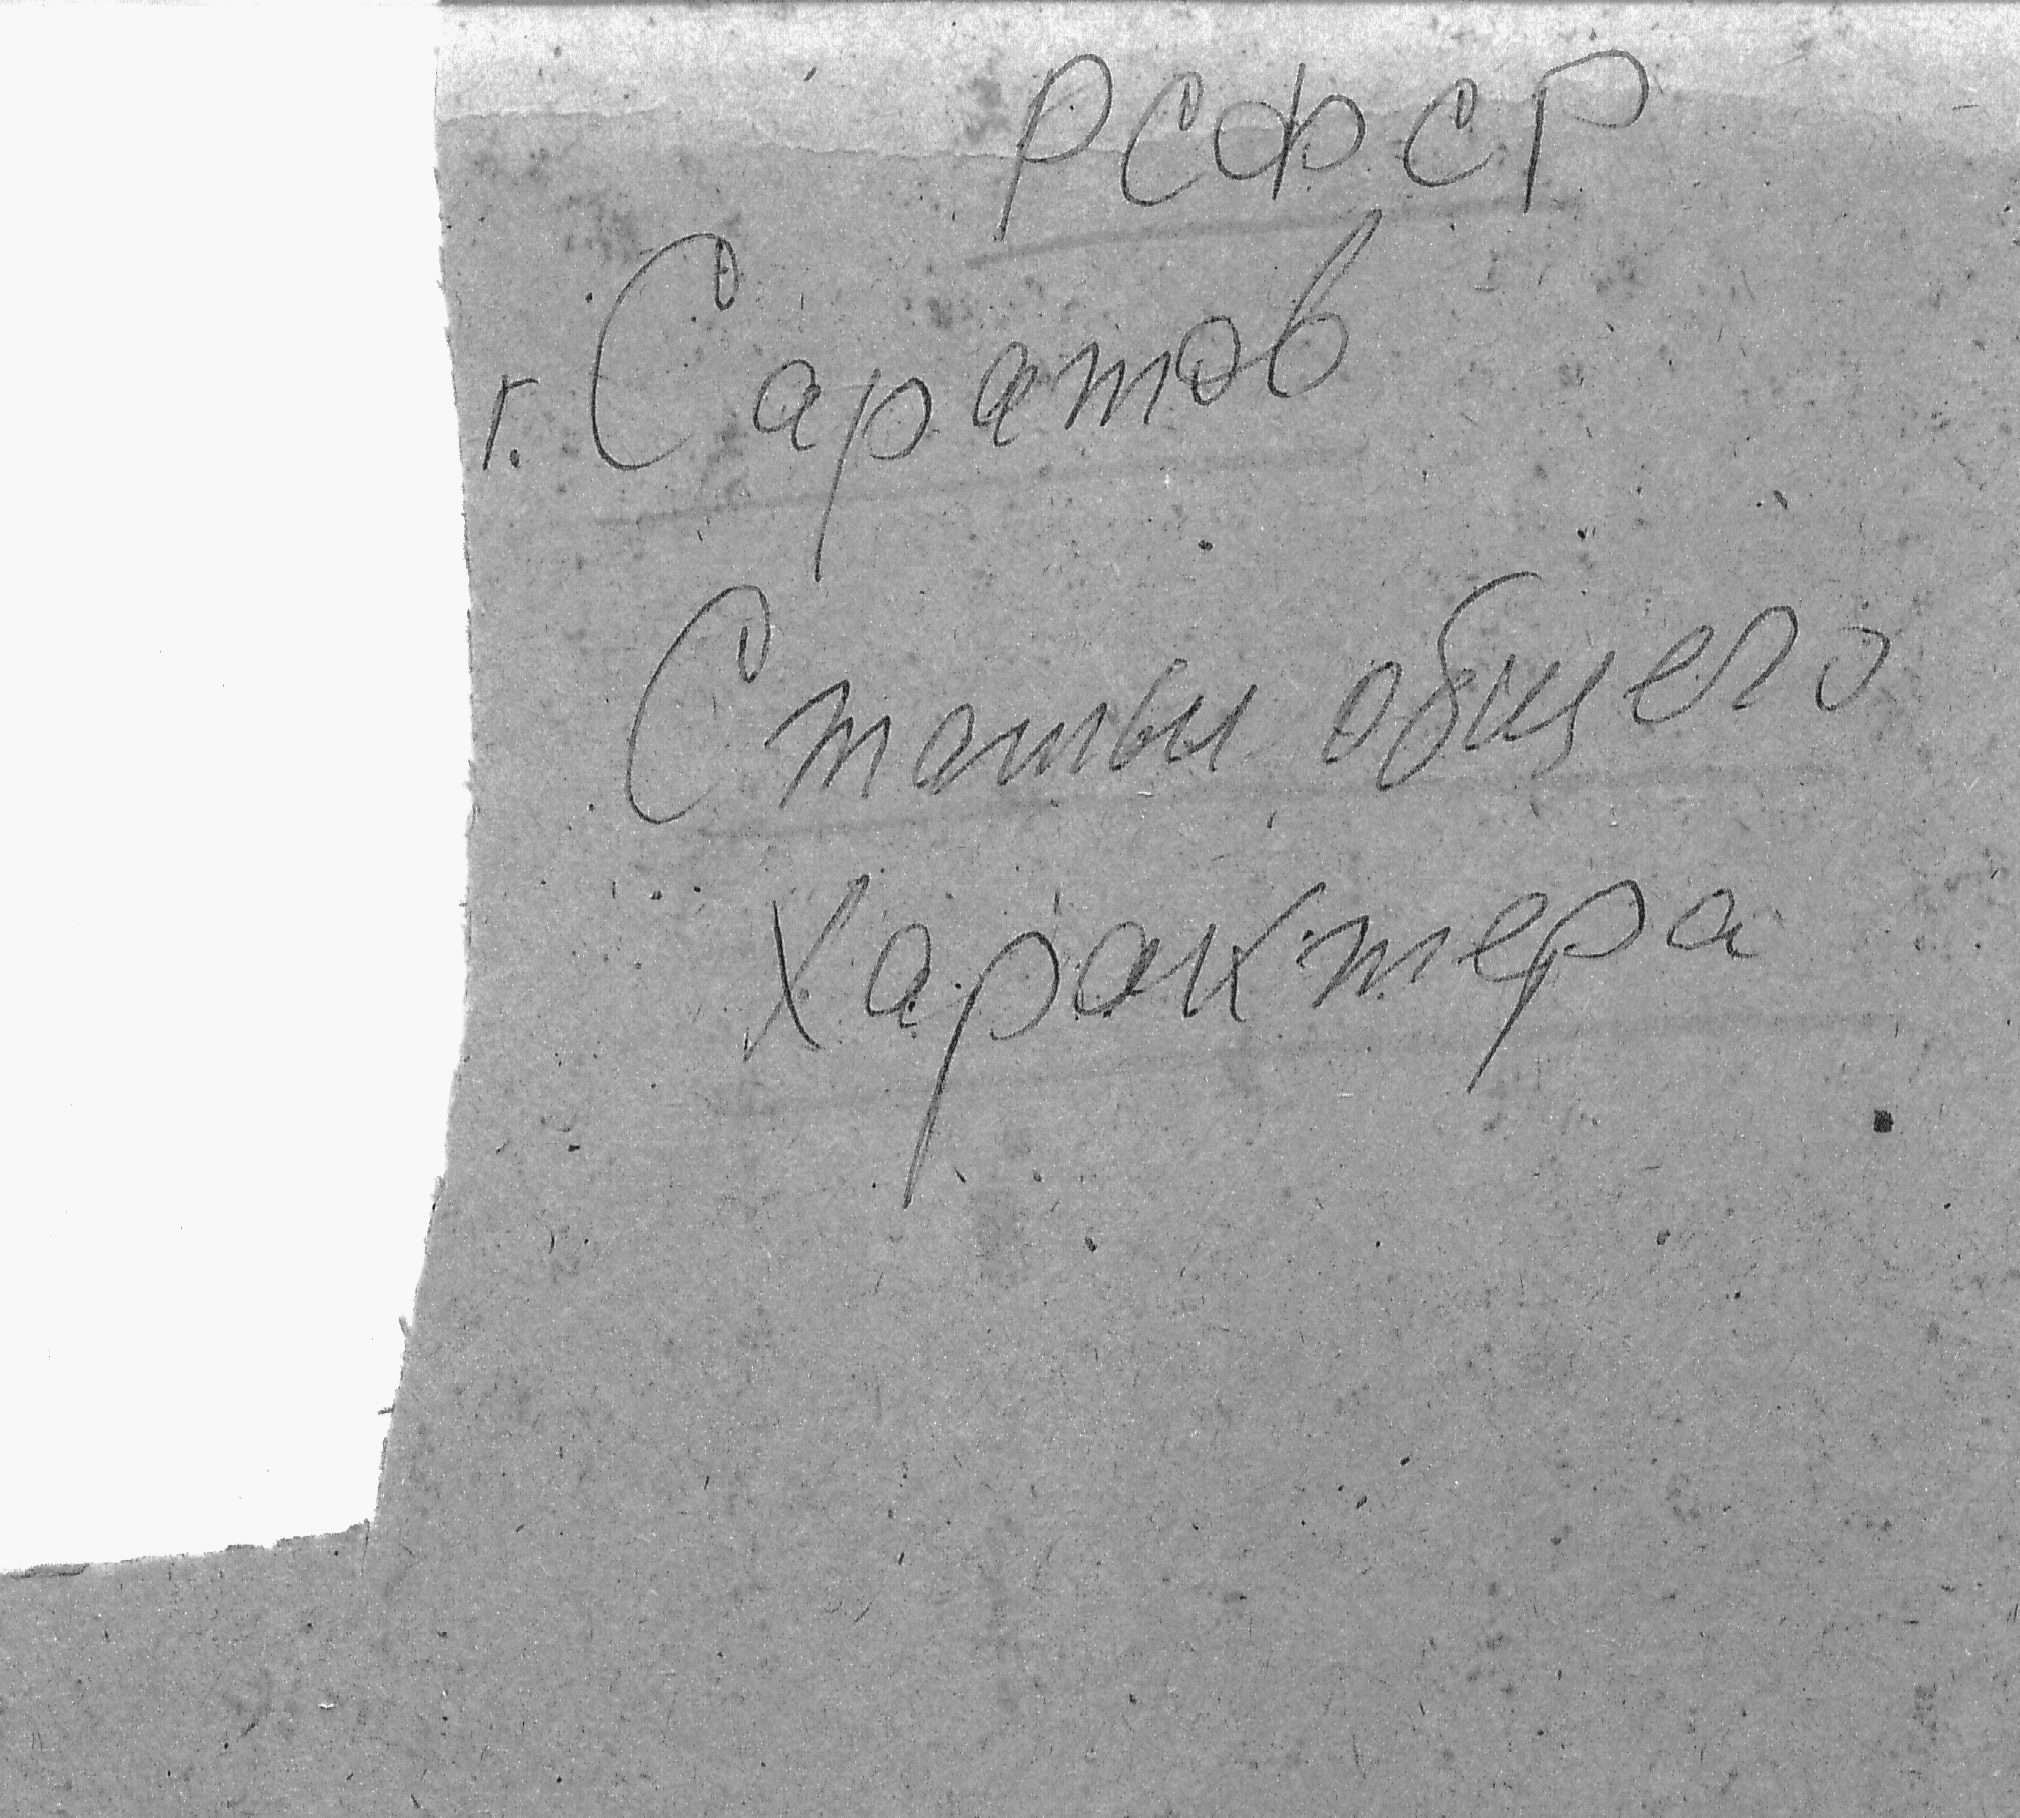 РСФСР
г. Саратов
Статьи общего
характера